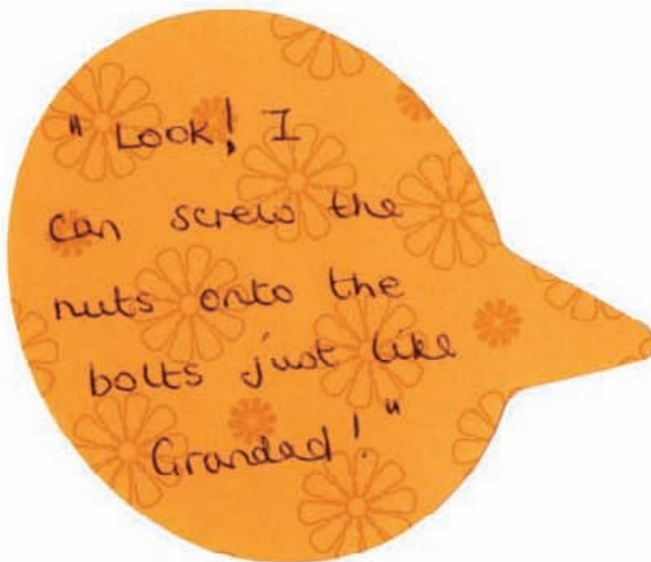 "Look! I
can screw the
nuts onto the
bolts just like
Grandad!"